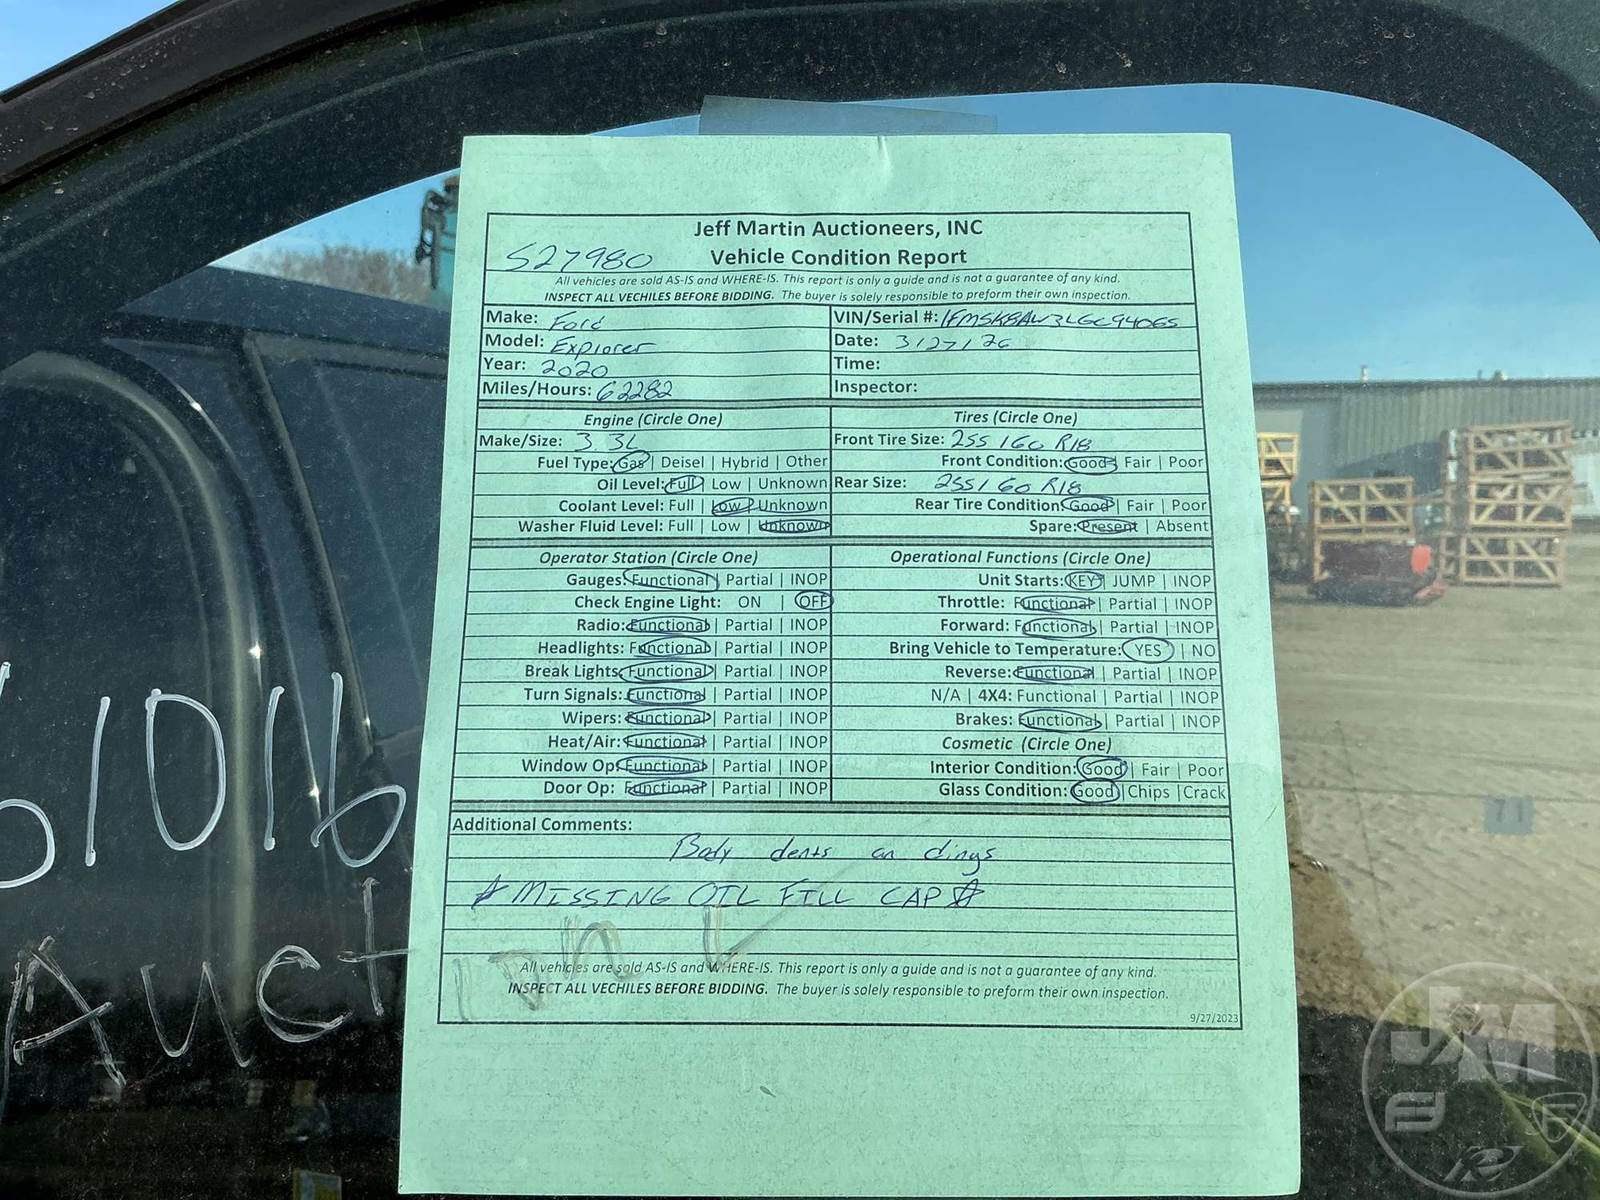 Jeff Martin Auctioneers, INC
S27980 Vehicle Condition Report
All vehicles are sold AS-IS and WHERE-IS. This report is only a guide and is not a guarantee of any kind.
INSPECT ALL VECHILES BEFORE BIDDING. The buyer is solely responsible to preform their own inspection.
Make: Ford VIN/Serial #: 1FMSK8AW3LGC94065
Model: Explorer Date: 3/27/26
Year: 2020 Time:
Miles/Hours: 62282 Inspector:
Engine (Circle One) Tires (Circle One)
Make/Size: 3.3L Front Tire Size: 255/60 R18
Fuel Type: Gas | Deisel | Hybrid | Other Front Condition: Good | Fair | Poor
Oil Level: Full | Low | Unknown Rear Size: 255/60 R18
Coolant Level: Full | Low | Unknown Rear Tire Condition: Good | Fair | Poor
Washer Fluid Level: Full | Low | Unknown Spare: Present | Absent
Operator Station (Circle One) Operational Functions (Circle One)
Gauges: Functional | Partial | INOP Unit Starts: KEY | JUMP | INOP
Check Engine Light: ON | OFF Throttle: Functional | Partial | INOP
Radio: Functional | Partial | INOP Forward: Functional | Partial | INOP
Headlights: Functional | Partial | INOP Bring Vehicle to Temperature: YES | NO
Break Lights: Functional | Partial | INOP Reverse: Functional | Partial | INOP
Turn Signals: Functional | Partial | INOP N/A | 4X4: Functional | Partial | INOP
Wipers: Functional | Partial | INOP Brakes: Functional | Partial | INOP
Heat/Air: Functional | Partial | INOP Cosmetic (Circle One)
Window Op: Functional | Partial | INOP Interior Condition: Good | Fair | Poor
Door Op: Functional | Partial | INOP Glass Condition: Good | Chips | Crack
Additional Comments:
Body dents an dings
☆ MISSING OIL FILL CAP ☆
All vehicles are sold AS-IS and WHERE-IS. This report is only a guide and is not a guarantee of any kind.
INSPECT ALL VECHILES BEFORE BIDDING. The buyer is solely responsible to preform their own inspection.
9/27/2023
61016
Auct
71
JM